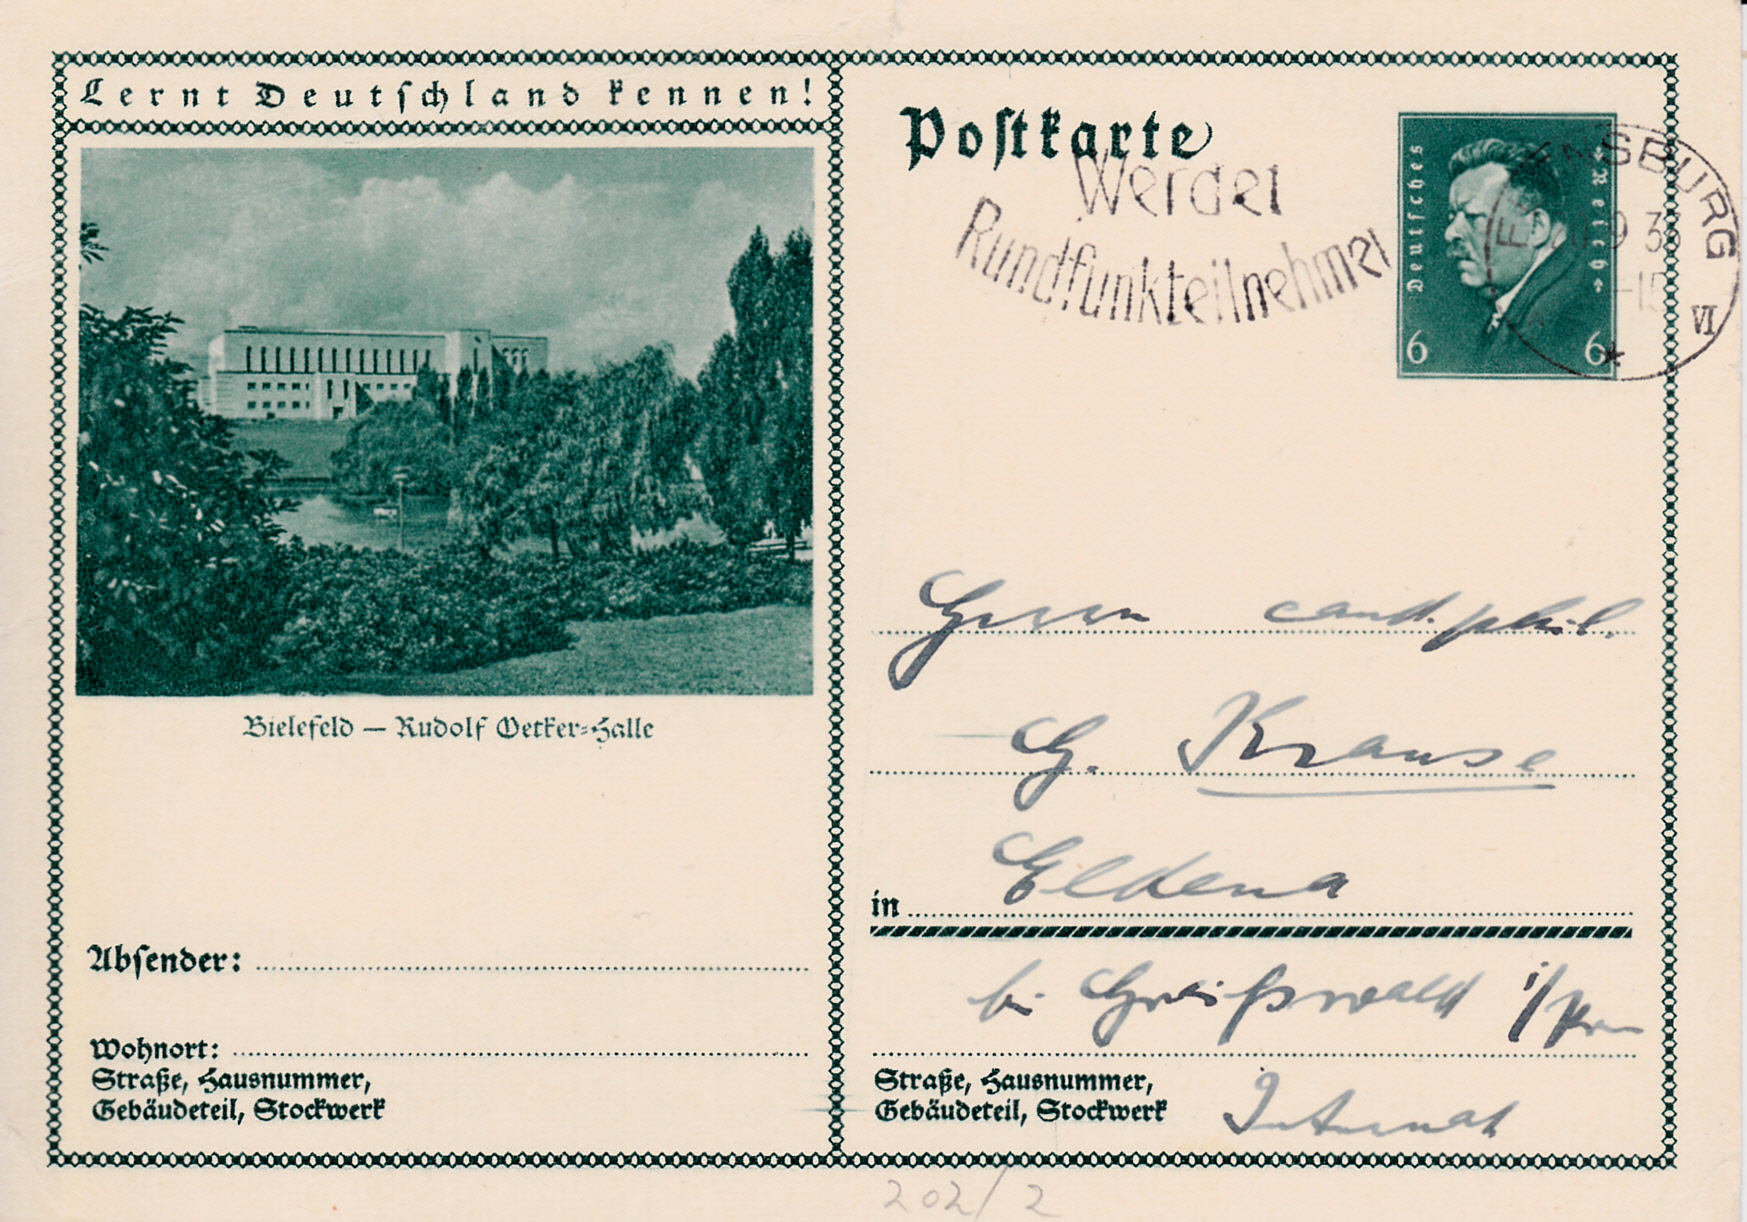 Lernt Deutschland kennen!
Bielefeld — Rudolf Oetker-Halle
Absender:
Wohnort:
Straße, Hausnummer,
Gebäudeteil, Stockwerk
Postkarte
Werdet
Rundfunkteilnehmer
Deutsches Reich
6 6
FLENSBURG
9 33
-15
VI
*
Herrn cand. phil.
G. Krause
in Eldena
bei Greifswald i/Pom
Straße, Hausnummer,
Gebäudeteil, Stockwerk
Internat
202/2